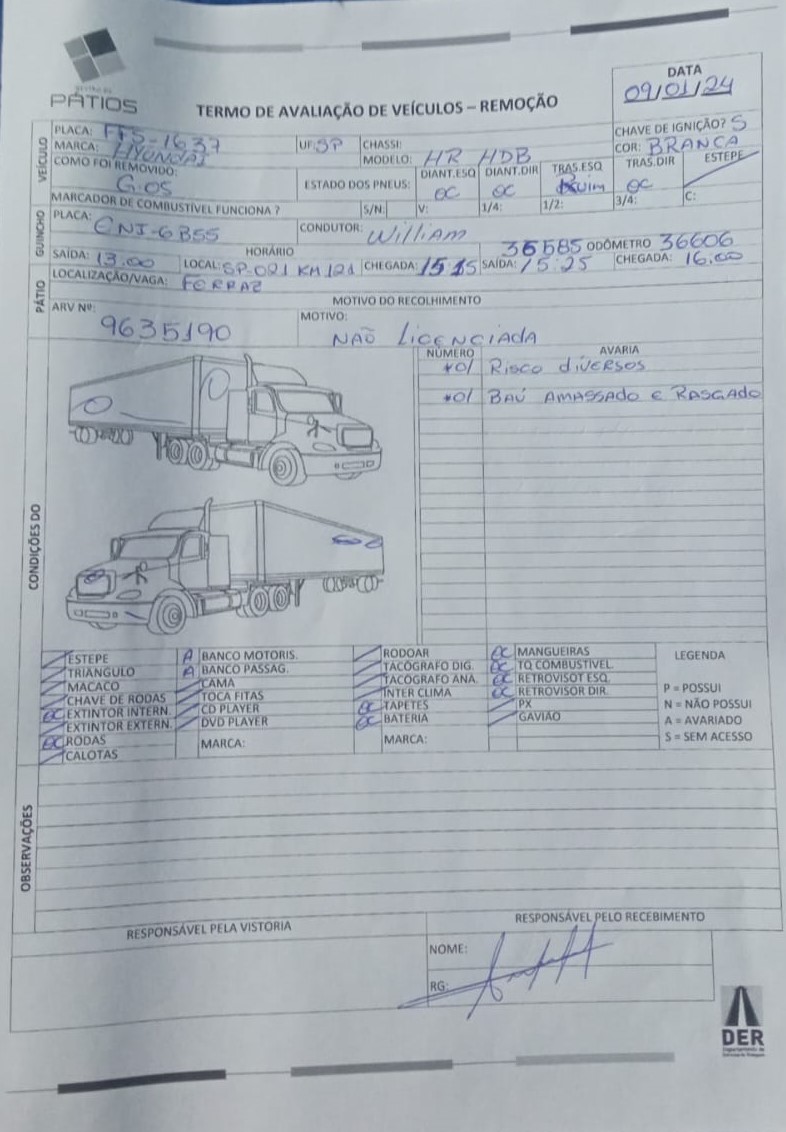 PÁTIOS
TERMO DE AVALIAÇÃO DE VEÍCULOS – REMOÇÃO
DATA
09/01/24
VEÍCULO
PLACA: FTS-1637 UF: SP CHASSI: CHAVE DE IGNIÇÃO? S
MARCA: HYUNDAI MODELO: HR HDB COR: BRANCA
COMO FOI REMOVIDO: G.05 ESTADO DOS PNEUS: DIANT.ESQ DIANT.DIR TRAS.ESQ TRAS.DIR ESTEPE
OC OC Ruim OC
MARCADOR DE COMBUSTÍVEL FUNCIONA ? S/N: V: 1/4: 1/2: 3/4: C:
GUINCHO
PLACA: CNJ-6B55 CONDUTOR: William
HORÁRIO 36585 ODÔMETRO 36606
SAÍDA: 13.00 LOCAL: SP-021 KM 121 CHEGADA: 15 15 SAÍDA: 15:25 CHEGADA: 16.00
PÁTIO
LOCALIZAÇÃO/VAGA: FERRAZ
MOTIVO DO RECOLHIMENTO
ARV Nº: 9635190 MOTIVO: NÃO LICENCIADA
CONDIÇÕES DO
NÚMERO AVARIA
*01 RISCO DIVERSOS
*01 BAÚ AMASSADO E RASGADO
ESTEPE A BANCO MOTORIS. RODOAR OC MANGUEIRAS LEGENDA
TRIANGULO A BANCO PASSAG. TACÓGRAFO DIG. OC TQ COMBUSTÍVEL
MACACO CAMA TACÓGRAFO ANA. OC RETROVISOT ESQ. P = POSSUI
CHAVE DE RODAS TOCA FITAS INTER CLIMA OC RETROVISOR DIR. N = NÃO POSSUI
OC EXTINTOR INTERN. CD PLAYER OC TAPETES PX A = AVARIADO
EXTINTOR EXTERN. DVD PLAYER OC BATERIA GAVIÃO S = SEM ACESSO
OC RODAS MARCA: MARCA:
CALOTAS
OBSERVAÇÕES
RESPONSÁVEL PELA VISTORIA RESPONSÁVEL PELO RECEBIMENTO
NOME:
RG:
DER